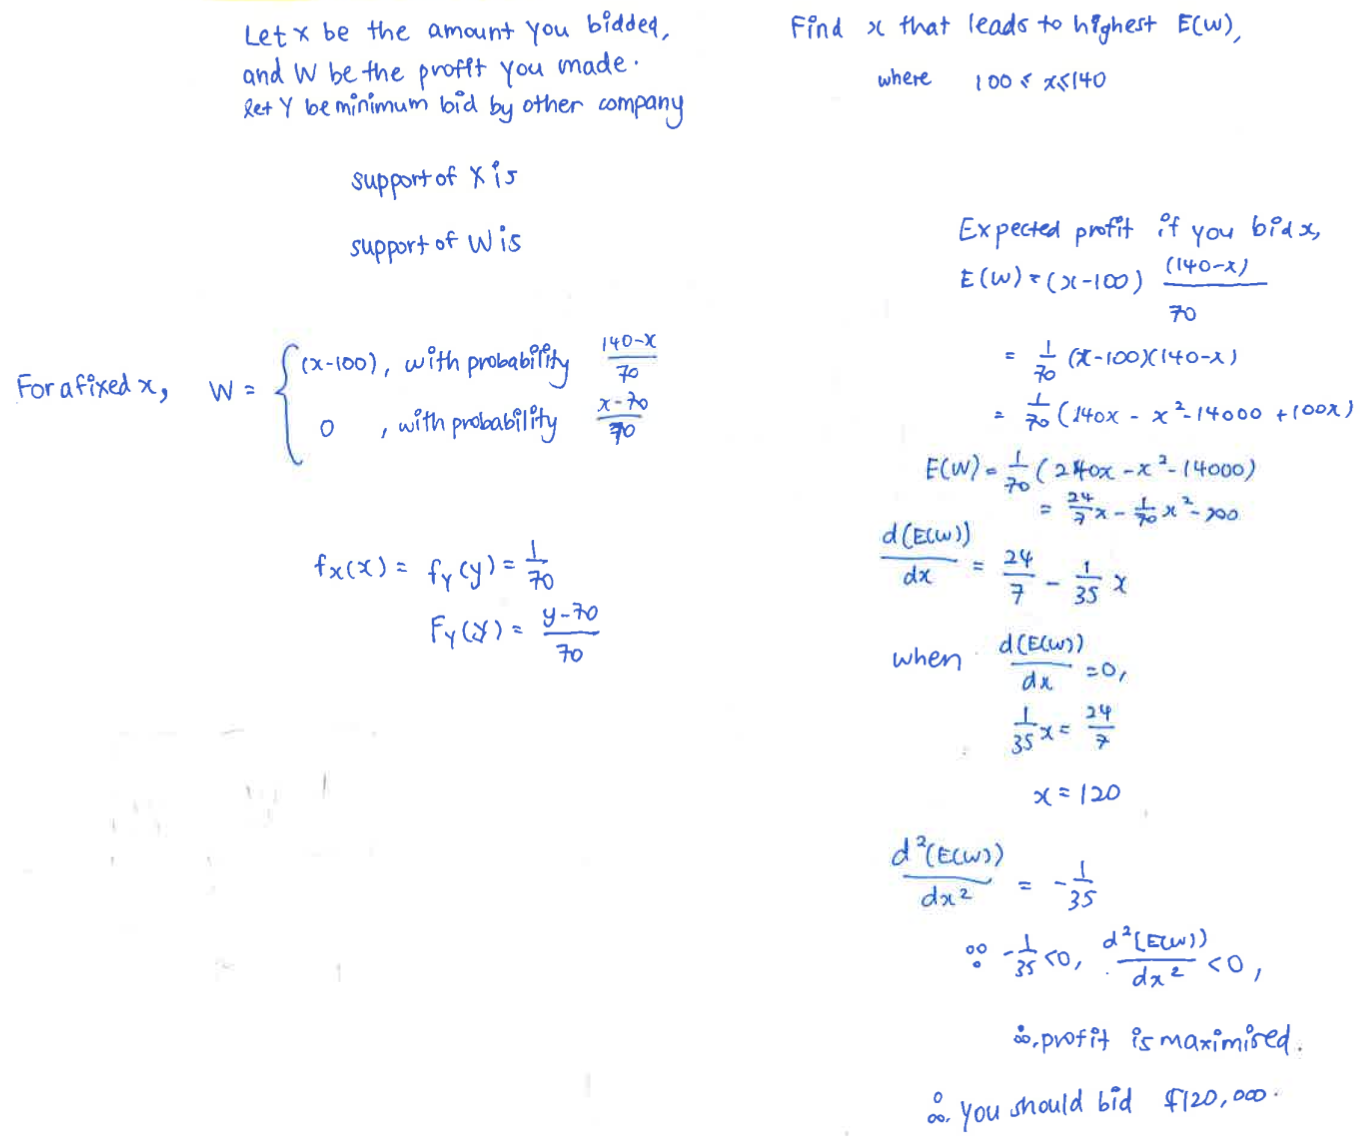 Let x be the amount you bidded,
and W be the profit you made.
let Y be minimum bid by other company
support of X is
support of W is
For a fixed x, W = { (x-100), with probability (140-x)/70
0 , with probability (x-70)/70
fx(x) = fY(y) = 1/70
FY(y) = (y-70)/70
Find x that leads to highest E(W),
where 100 ≤ x ≤ 140
Expected profit if you bid x,
E(W) = (x-100) (140-x)/70
= 1/70 (x-100)(140-x)
= 1/70 (140x - x² - 14000 + 100x)
E(W) = 1/70 (240x - x² - 14000)
= 24/7 x - 1/70 x² - 200
d(E(W))/dx = 24/7 - 1/35 x
when d(E(W))/dx = 0,
1/35 x = 24/7
x = 120
d²(E(W))/dx² = - 1/35
∵ - 1/35 < 0, d²(E(W))/dx² < 0,
∴ profit is maximised.
∴ you should bid $120,000.